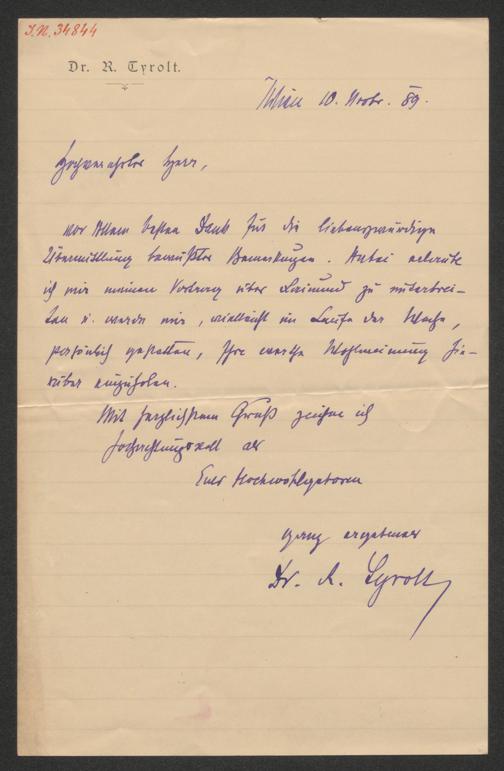 I.N. 34844
Dr. R. Tyrolt.
Wien 10. Novbr. 89.
Hochverehrter Herr,
vor Allem besten Dank für die liebenswürdige
Übermittlung bewußter Bemerkungen. Anbei erlaube
ich mir meinen Vortrag über Raimund zu unterbrei-
ten u. werde mir, vielleicht im Laufe der Woche,
persönlich gestatten, Ihre werthe Wohlmeinung hie-
rüber einzuholen.
Mit herzlichstem Gruß zeichne ich
hochachtungsvoll als
Euer Hochwohlgeboren
ganz ergebener
Dr. R. Tyrolt